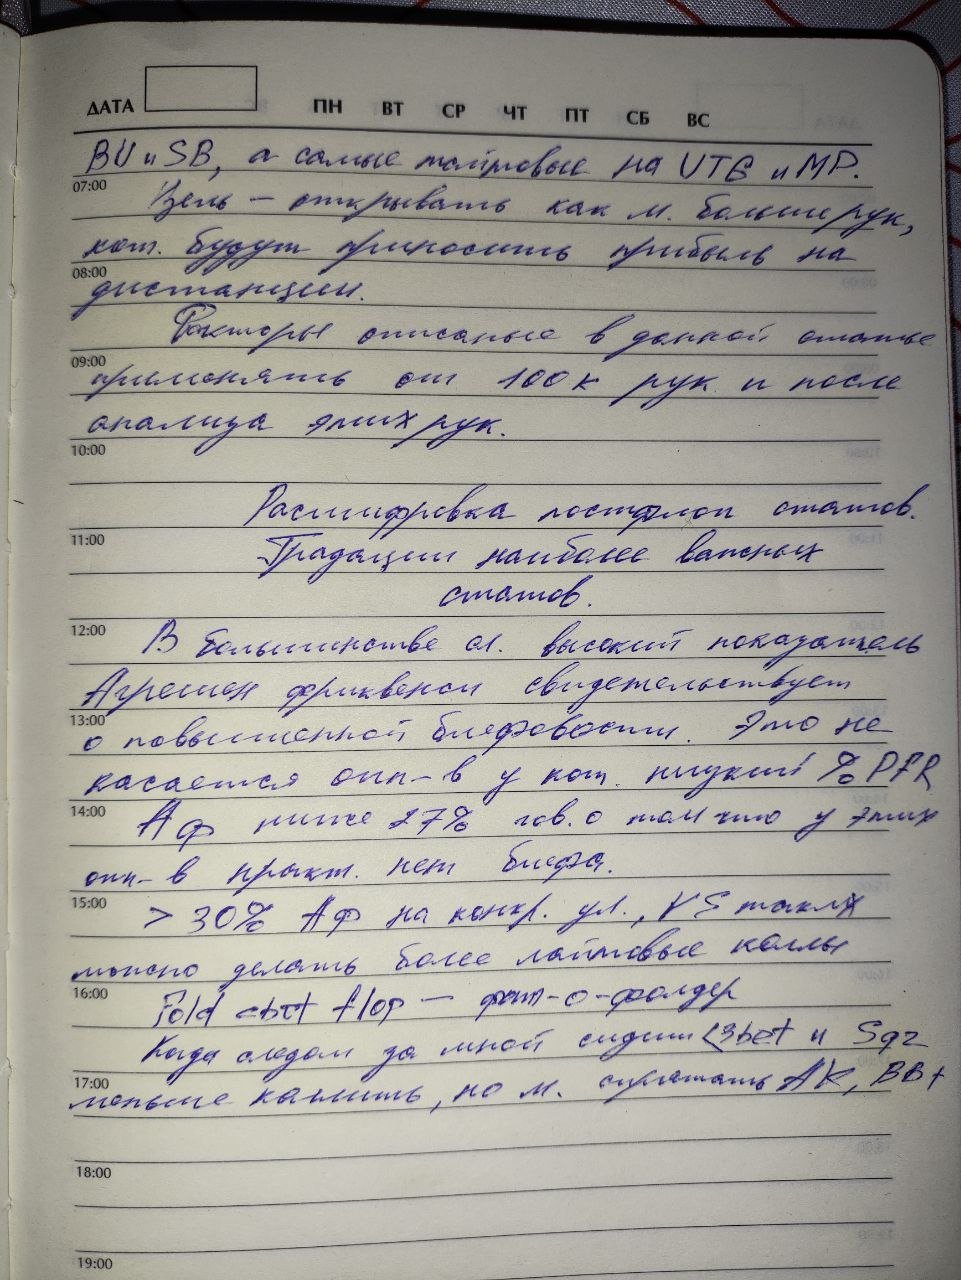 ДАТА ПН ВТ СР ЧТ ПТ СБ ВС
BU и SB, а самые тайтовые на UTG и MP.
07:00
Цель – открывать как м. больше рук,
кот. будут приносить прибыль на
08:00
дистанции.
Факторы описаные в данной статье
09:00
применять от 100к рук и после
анализа этих рук.
10:00
Расшифровка постфлоп статов.
11:00
Градации наиболее важных
статов.
12:00
В большинстве сл. высокий показатель
Агрешен фриквенси свидетельствует
13:00
о повышенной блефовости. Это не
касается опп-в у кот. низкий % PFR
14:00
Аф ниже 27% гов. о том что у этих
опп-в практ. нет блефа.
15:00
> 30% Аф на конкр. ул., VS таких
можно делать более лайтовые коллы
16:00
Fold cbet flop – фит-о-фолдер
Когда следом за мной сидит <3bet и Sqz
17:00
меньше колить, но м. спрятать АК, ВВ+
18:00
19:00